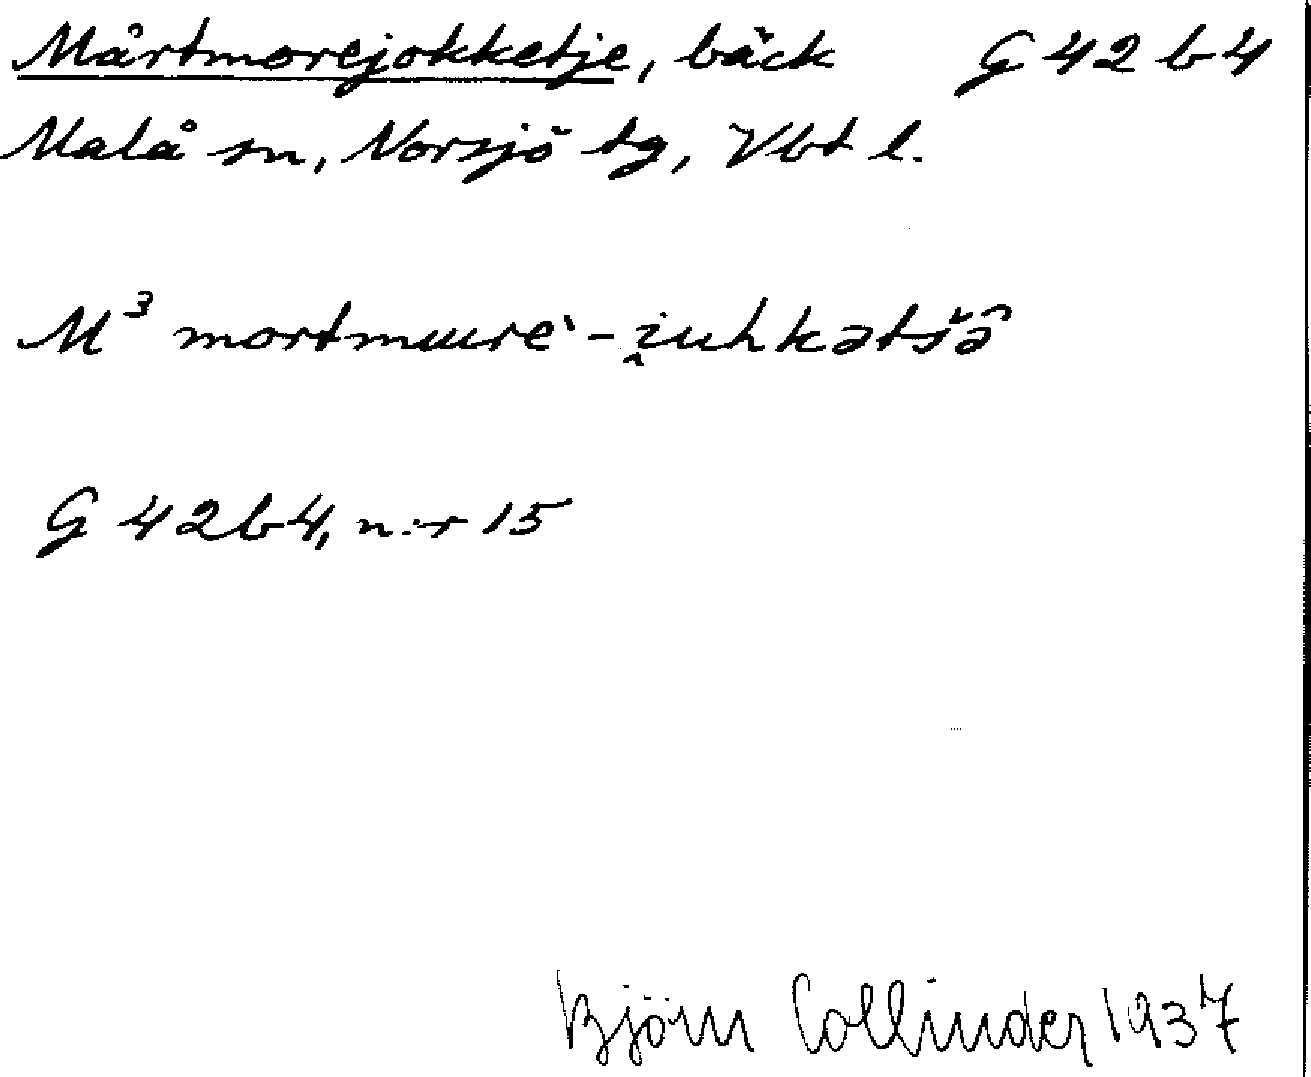 Mårtmorejokketje, bäck G 42 b 4
Malå sn, Norsjö tg, Vbt l.
M³ mortmuure`-i̯uhkətšə̂
G 42b4, n:r 15
Björn Collinder 1937